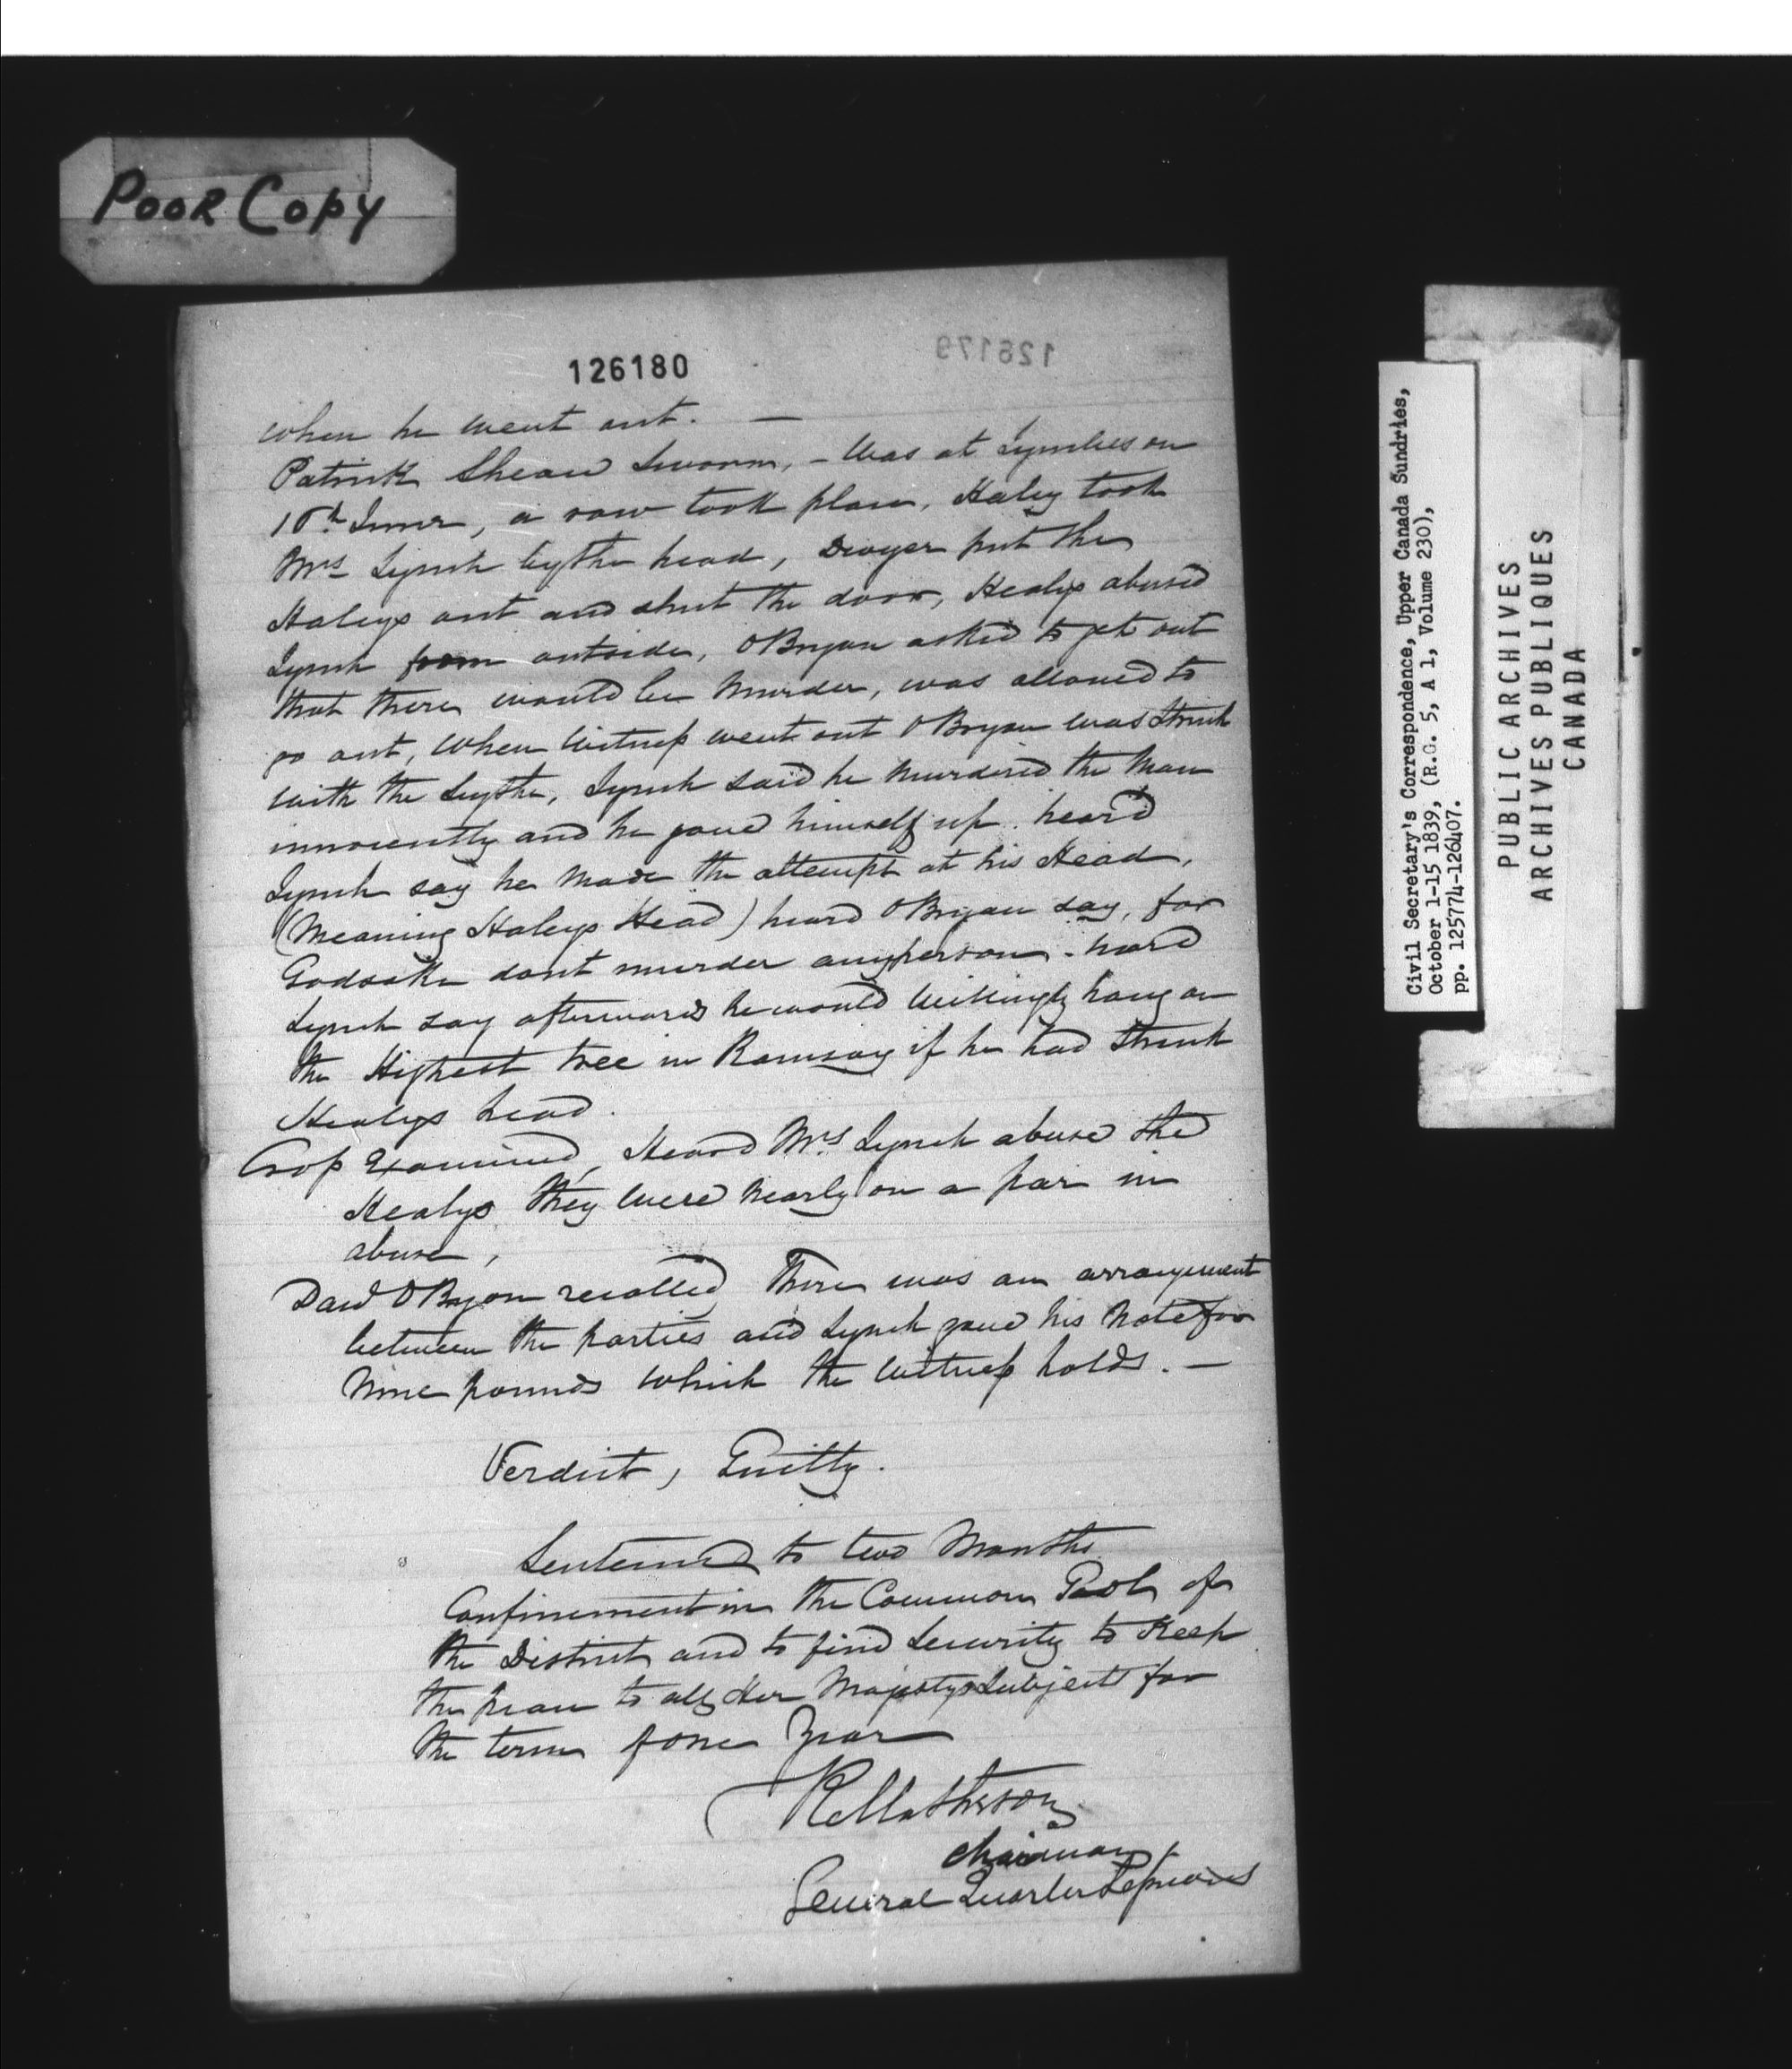 POOR COPY
126180
126179
when he went out. —
Patrick Shean Sworn, – Was at Lynches on
10th June, a row took place, Haley took
Mrs Lynch by the head, Dwyer put the
Haleys out and shut the door, Healys abused
Lynch from outside, OBryan asked to get out
that there would be Murder, was allowed to
go out, when Witness went out OBryan was Struck
with the Scythe, Lynch said he Murdered the Man
innocently and he gave himself up. heard
Lynch say he Made the attempt at his Head,
(Meaning Haleys Head) heard OBryan say, for
Godsake dont murder any person. heard
Lynch say afterwards he would Willingly hang on
the Highest tree in Ramsay if he had Struck
Healys head.
Cross Examined, Heard Mrs Lynch abuse the
Healys they were nearly on a par in
abuse,
Davd OBryan recalled There was an arrangement
between the parties and Lynch gave his Note for
Nine pounds which the Witness holds. —
Verdict, Guilty.
Sentenced to two Months
Confinement in the Common Gaol of
the District and to find Security to Keep
the peace to all Her Majestys Subjects for
the term of one Year
R Matheson
Chairman
General Quarter Sessions
Civil Secretary's Correspondence, Upper Canada Sundries,
October 1-15 1839, (R.G. 5, A 1, Volume 230),
pp. 125774-126407.
PUBLIC ARCHIVES
ARCHIVES PUBLIQUES
CANADA